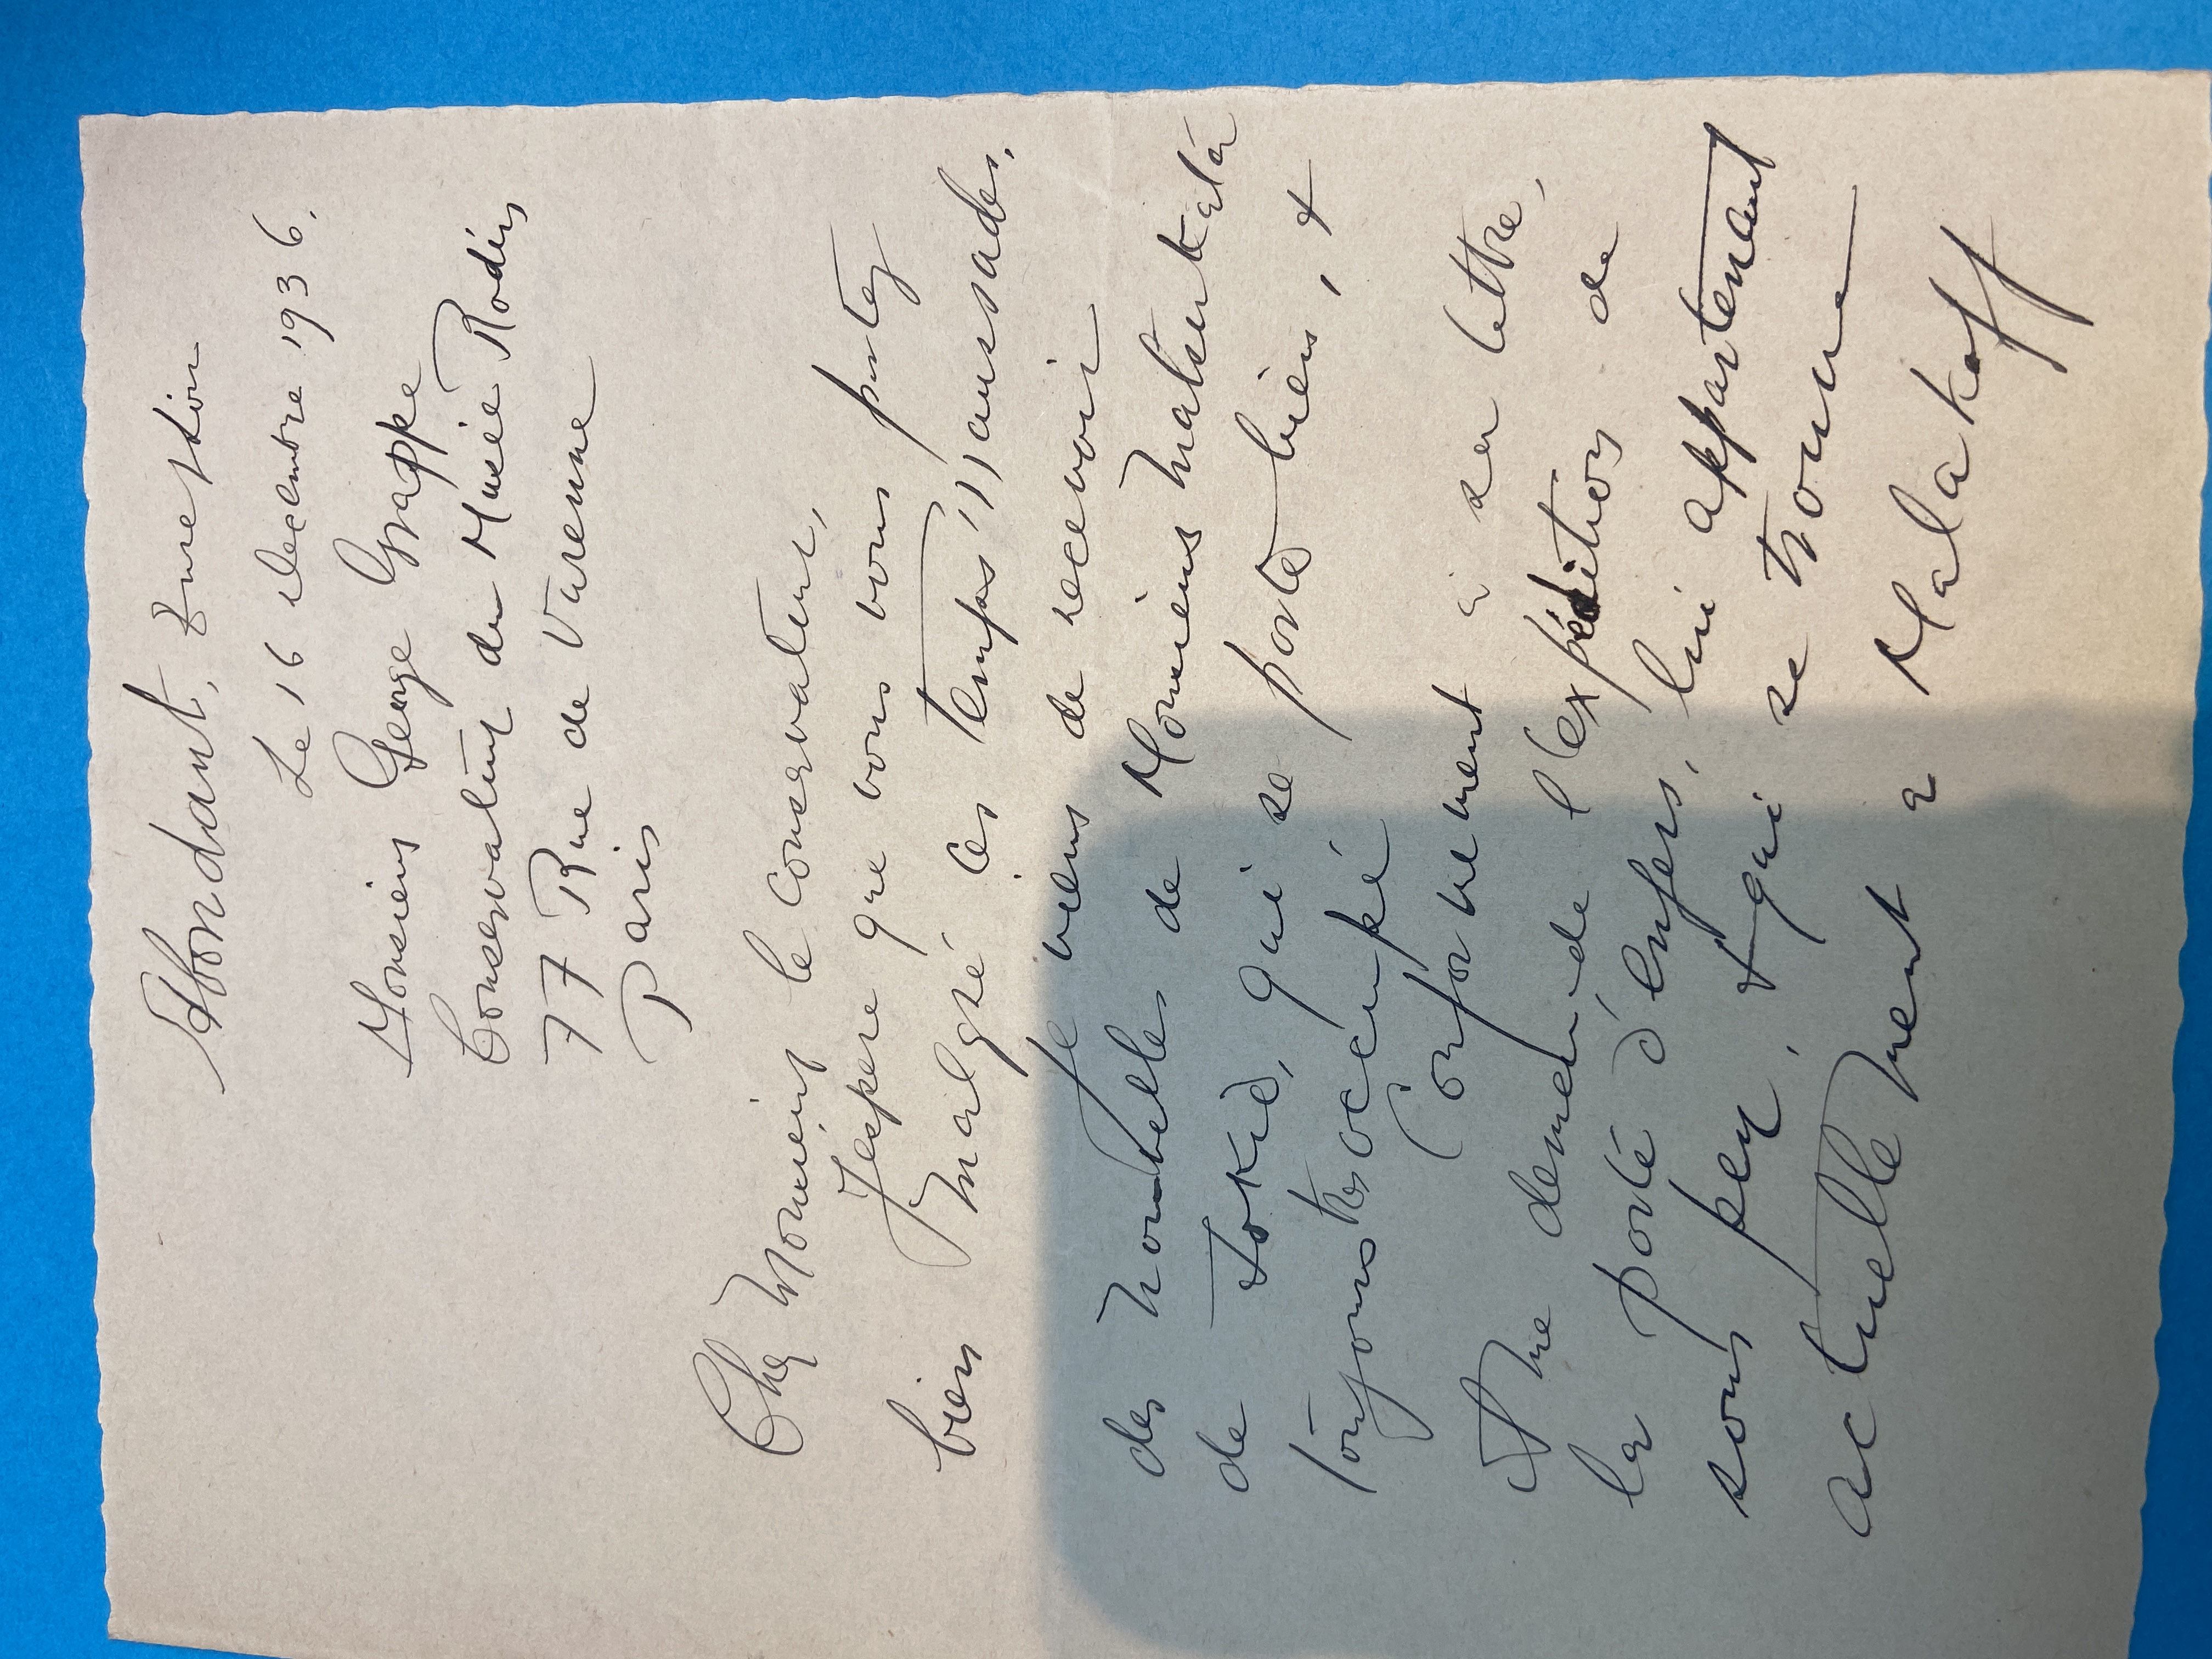 Abondant, Eure & Loir
Le 16 decembre 1936.
Monsieur George Grappe
Conservateur du Musée Rodin
77 Rue de Varenne
Paris
Cher Monsieur le Conservateur,
J'espere que vous vous portez
bien malgré, ces temps maussades,
je viens de recevoir
des nouvelles de Monsieur Matsukata
de Tokio, qui se porte bien, &
toujours tres occupé
Conformement à sa lettre,
et me demande l'expédition de
la porte d'enfer, lui appartenant
sous peu, & qui se trouve
actuellement a Malakoff